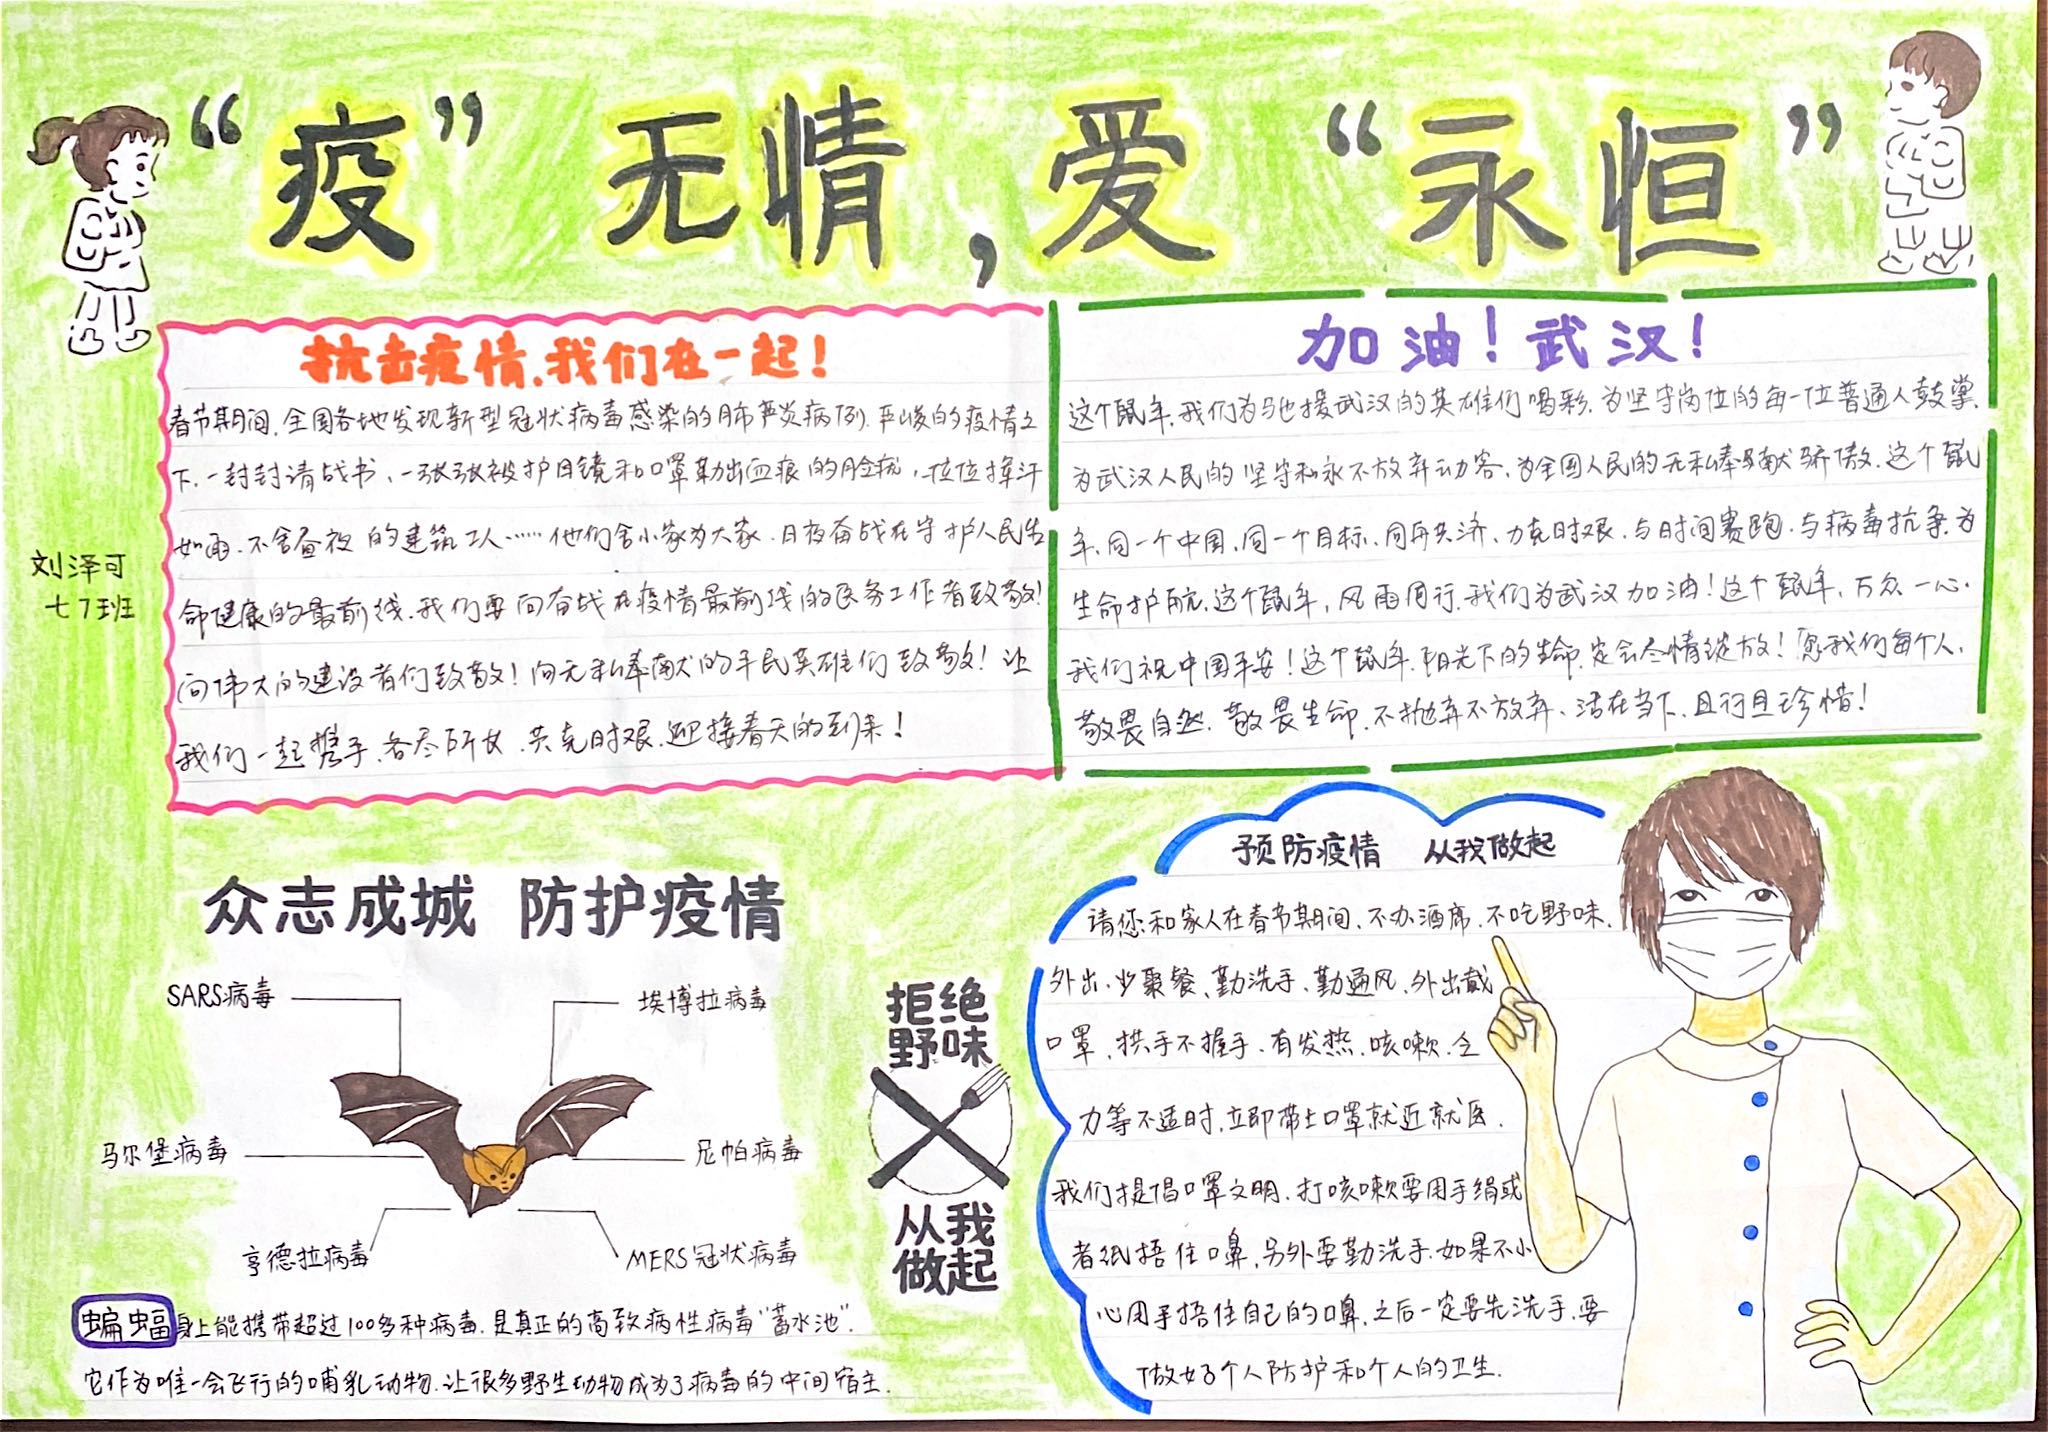 “疫”无情,爱“永恒”
刘泽可
七7班
抗击疫情.我们在一起！
春节期间.全国各地发现新型冠状病毒感染的肺炎病例.严峻的疫情之
下.一封封请战书、一张张被护目镜和口罩勒出血痕的脸庞，一位位挥汗
如雨.不舍昼夜的建筑工人……他们舍小家为大家.日夜奋战在守护人民生
命健康的最前线.我们要向奋战在疫情最前线的医务工作者致敬!
向伟大的建设者们致敬！向无私奉献的平民英雄们致敬！让
我们一起携手.各尽所女.共克时艰.迎接春天的到来！
加油！武汉！
这个鼠年.我们为驰援武汉的英雄们喝彩.为坚守岗位的每一位普通人鼓掌.
为武汉人民的坚守和永不放弃动容.为全国人民的无私奉献骄傲.这个鼠
年.同一个中国.同一个目标.同舟共济.力克时艰.与时间赛跑.与病毒抗争.为
生命护航.这个鼠年，风雨同行.我们为武汉加油！这个鼠年，万众一心.
我们祝中国平安！这个鼠年.阳光下的生命.定会尽情绽放！愿我们每个人.
敬畏自然.敬畏生命.不抛弃不放弃、活在当下.且行且珍惜！
众志成城 防护疫情
SARS病毒
埃博拉病毒
马尔堡病毒
尼帕病毒
亨德拉病毒
MERS冠状病毒
蝙蝠身上能携带超过100多种病毒.是真正的高致病性病毒“蓄水池”.
它作为唯一会飞行的哺乳动物.让很多野生动物成为了病毒的中间宿主.
拒绝
野味
从我
做起
预防疫情 从我做起
请您和家人在春节期间、不办酒席.不吃野味.
外出.少聚餐、勤洗手、勤通风、外出戴
口罩、拱手不握手.有发热.咳嗽.乏
力等不适时.立即带上口罩就近就医.
我们提倡口罩文明.打咳嗽要用手绢或
者纸捂住口鼻.另外要勤洗手.如果不小
心用手捂住自己的口鼻.之后一定要先洗手.要
做好个人防护和个人的卫生.